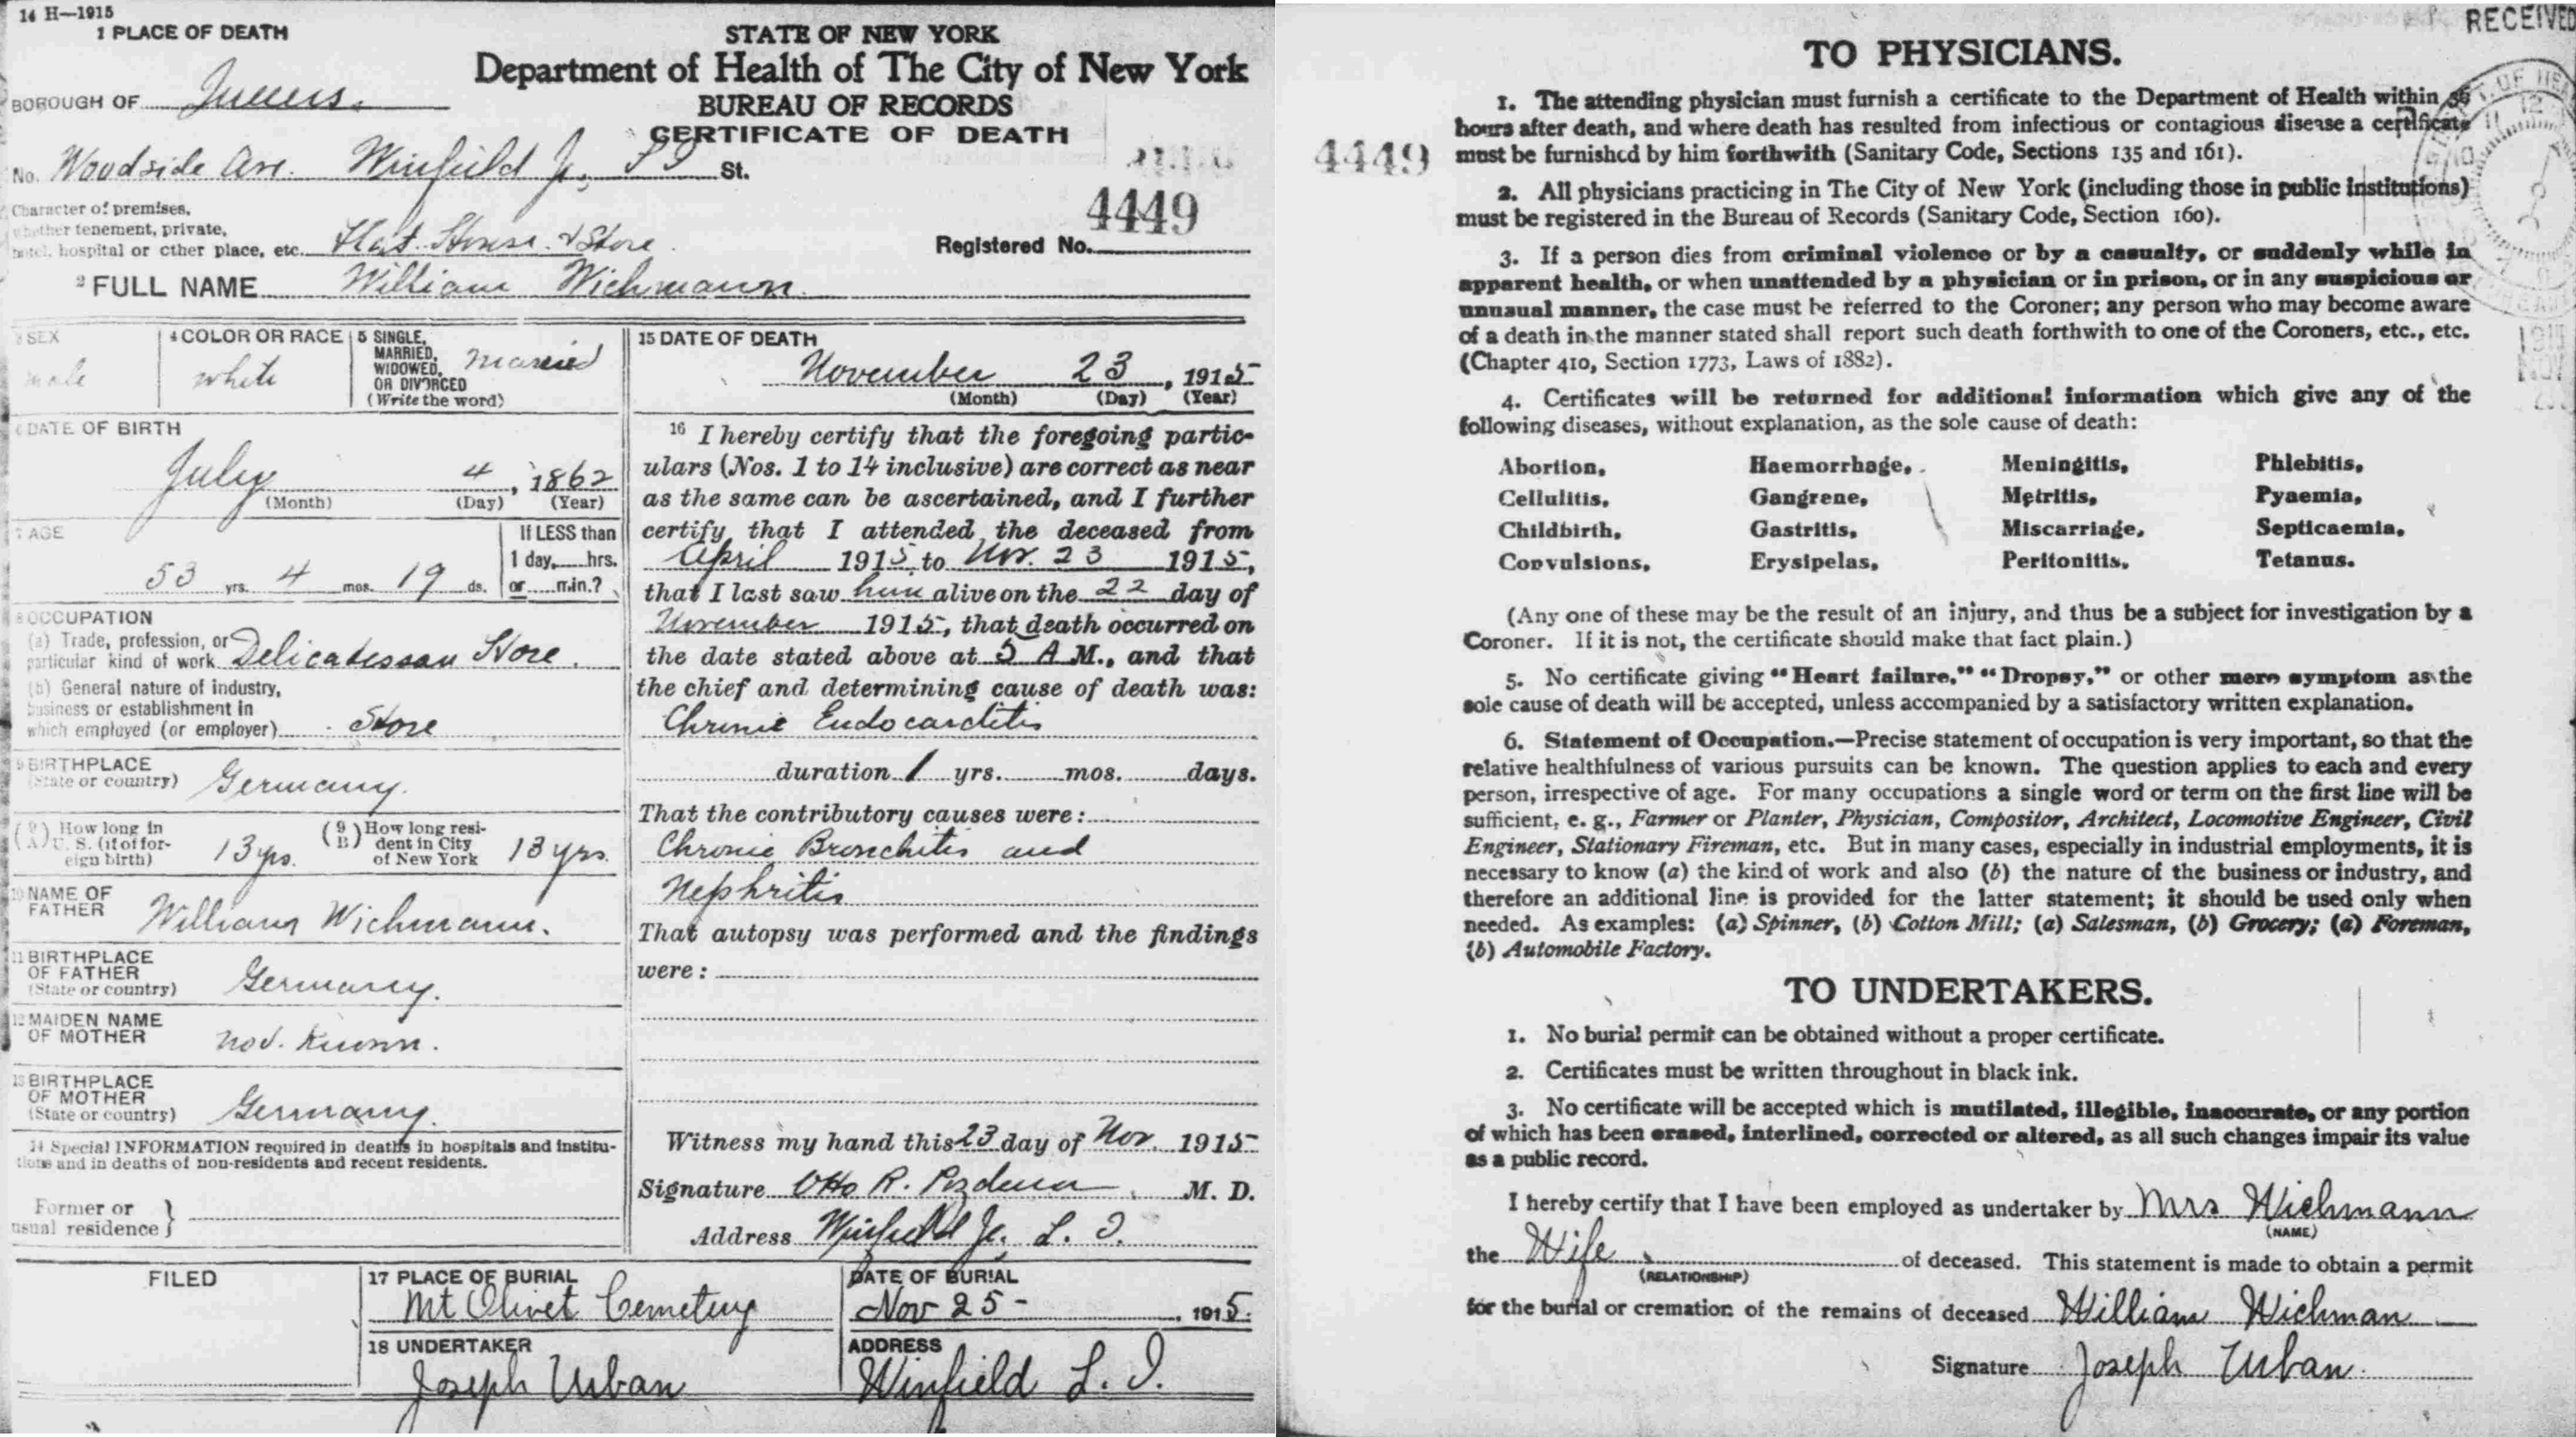 14 H—1915
1 PLACE OF DEATH
STATE OF NEW YORK
Department of Health of The City of New York
BUREAU OF RECORDS
CERTIFICATE OF DEATH
BOROUGH OF Queens.
No. Woodside Ave. Winfield Jc, L I St.
Character of premises,
whether tenement, private,
hotel, hospital or other place, etc. Flat House & Store
4449
Registered No.
2 FULL NAME William Wichmann
3 SEX
male
4 COLOR OR RACE
white
5 SINGLE,
MARRIED,
WIDOWED,
OR DIVORCED
(Write the word)
married
6 DATE OF BIRTH
July 4, 1862
(Month) (Day) (Year)
7 AGE
53 yrs. 4 mos. 19 ds.
If LESS than
1 day, hrs.
or min.?
8 OCCUPATION
(a) Trade, profession, or
particular kind of work Delicatessan Store.
(b) General nature of industry,
business or establishment in
which employed (or employer) Store
9 BIRTHPLACE
(State or country) Germany.
(9 A) How long in
U. S. (if of for-
eign birth) 13 yrs.
(9 B) How long resi-
dent in City
of New York 13 yrs.
10 NAME OF
FATHER William Wichmann.
11 BIRTHPLACE
OF FATHER
(State or country) Germany.
12 MAIDEN NAME
OF MOTHER not Known.
13 BIRTHPLACE
OF MOTHER
(State or country) Germany.
14 Special INFORMATION required in deaths in hospitals and institu-
tions and in deaths of non-residents and recent residents.
Former or
usual residence }
15 DATE OF DEATH
November 23, 1915
(Month) (Day) (Year)
16 I hereby certify that the foregoing partic-
ulars (Nos. 1 to 14 inclusive) are correct as near
as the same can be ascertained, and I further
certify that I attended the deceased from
April 1915 to Nov. 23 1915,
that I last saw him alive on the 22 day of
November 1915, that death occurred on
the date stated above at 5 A M., and that
the chief and determining cause of death was:
Chronic Endocarditis
duration 1 yrs. mos. days.
That the contributory causes were:
Chronic Bronchitis and
Nephritis
That autopsy was performed and the findings
were:
Witness my hand this 23 day of Nov. 1915
Signature Otto R. Pozdena M. D.
Address Winfield Jc. L. I.
FILED
17 PLACE OF BURIAL
Mt Olivet Cemetery
DATE OF BURIAL
Nov 25 - , 1915.
18 UNDERTAKER
Joseph Urban
ADDRESS
Winfield L. I.
RECEIVED
4449
TO PHYSICIANS.
1. The attending physician must furnish a certificate to the Department of Health within 36
hours after death, and where death has resulted from infectious or contagious disease a certificate
must be furnished by him forthwith (Sanitary Code, Sections 135 and 161).
2. All physicians practicing in The City of New York (including those in public institutions)
must be registered in the Bureau of Records (Sanitary Code, Section 160).
3. If a person dies from criminal violence or by a casualty, or suddenly while in
apparent health, or when unattended by a physician or in prison, or in any suspicious or
unusual manner, the case must be referred to the Coroner; any person who may become aware
of a death in the manner stated shall report such death forthwith to one of the Coroners, etc., etc.
(Chapter 410, Section 1773, Laws of 1882).
4. Certificates will be returned for additional information which give any of the
following diseases, without explanation, as the sole cause of death:
Abortion, Haemorrhage, Meningitis, Phlebitis,
Cellulitis, Gangrene, Metritis, Pyaemia,
Childbirth, Gastritis, Miscarriage, Septicaemia,
Convulsions, Erysipelas, Peritonitis, Tetanus.
(Any one of these may be the result of an injury, and thus be a subject for investigation by a
Coroner. If it is not, the certificate should make that fact plain.)
5. No certificate giving "Heart failure," "Dropsy," or other mere symptom as the
sole cause of death will be accepted, unless accompanied by a satisfactory written explanation.
6. Statement of Occupation.—Precise statement of occupation is very important, so that the
relative healthfulness of various pursuits can be known. The question applies to each and every
person, irrespective of age. For many occupations a single word or term on the first line will be
sufficient, e. g., Farmer or Planter, Physician, Compositor, Architect, Locomotive Engineer, Civil
Engineer, Stationary Fireman, etc. But in many cases, especially in industrial employments, it is
necessary to know (a) the kind of work and also (b) the nature of the business or industry, and
therefore an additional line is provided for the latter statement; it should be used only when
needed. As examples: (a) Spinner, (b) Cotton Mill; (a) Salesman, (b) Grocery; (a) Foreman,
(b) Automobile Factory.
TO UNDERTAKERS.
1. No burial permit can be obtained without a proper certificate.
2. Certificates must be written throughout in black ink.
3. No certificate will be accepted which is mutilated, illegible, inaccurate, or any portion
of which has been erased, interlined, corrected or altered, as all such changes impair its value
as a public record.
I hereby certify that I have been employed as undertaker by Mrs Wichmann
(NAME)
the Wife of deceased. This statement is made to obtain a permit
(RELATIONSHIP)
for the burial or cremation of the remains of deceased William Wichman
Signature Joseph Urban.